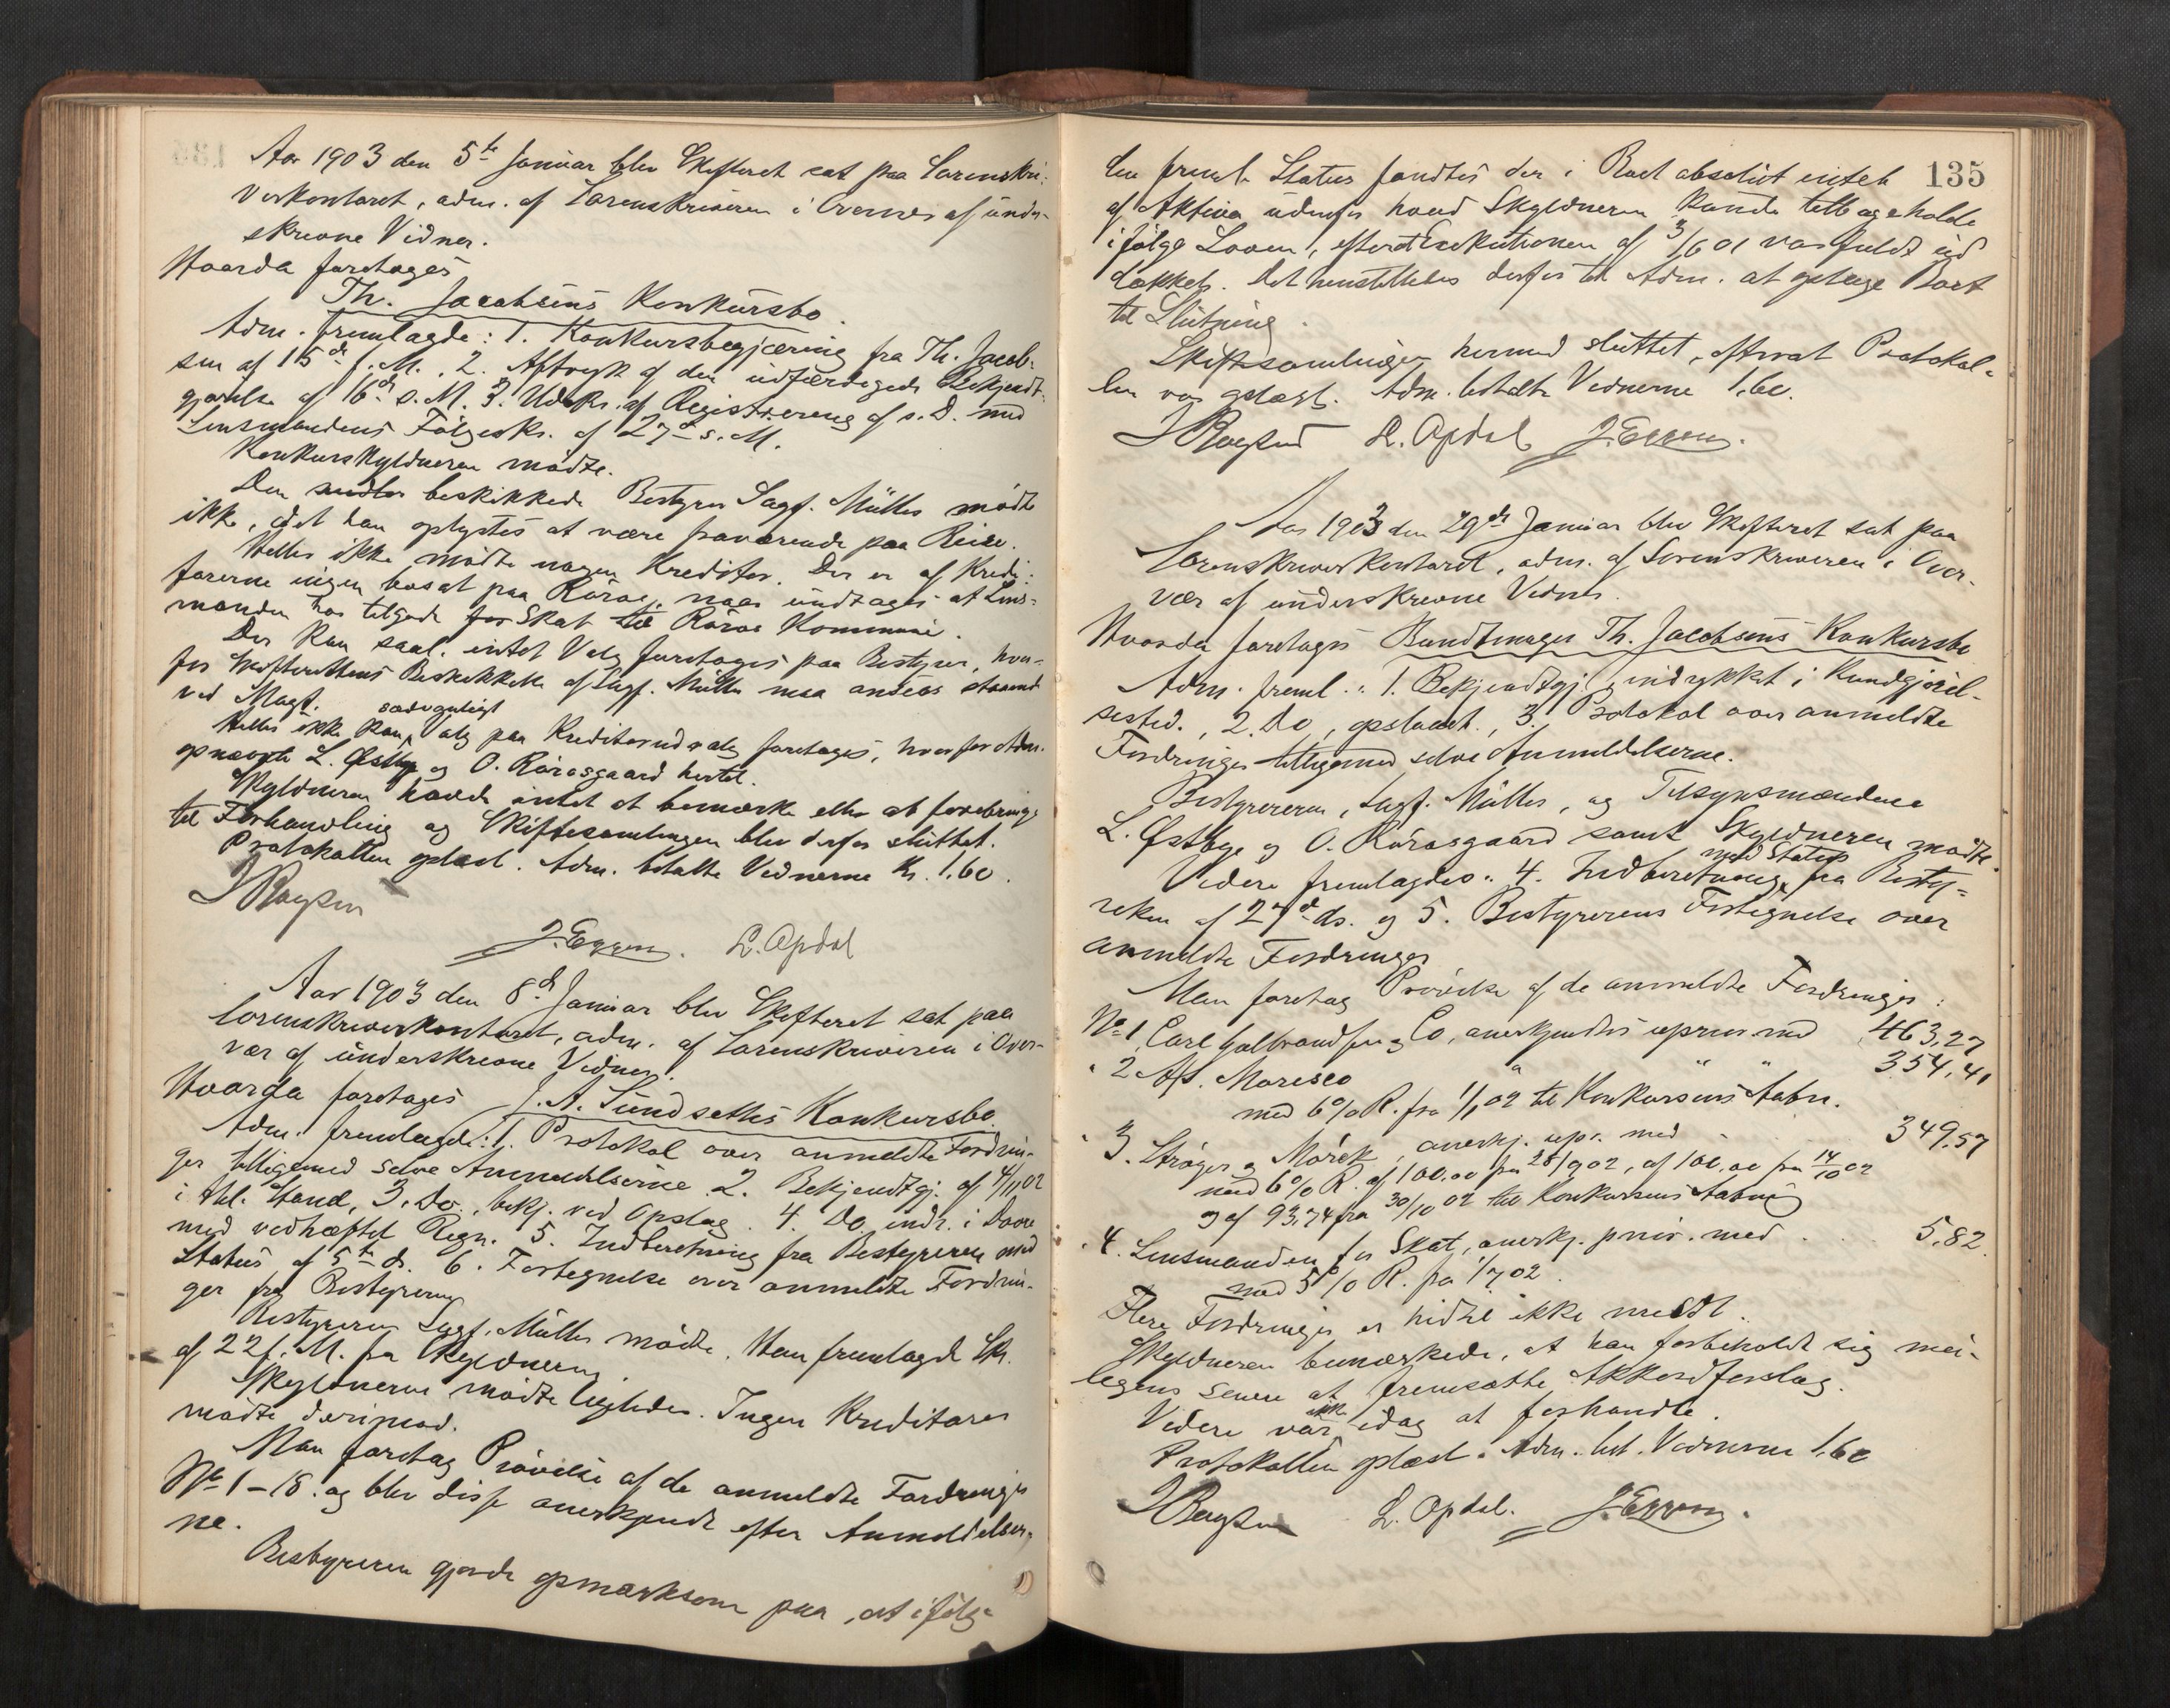 Aar 1903 den 5te Januar blev Skifteret sat paa Sorenskri-
verkontoret, adm. af Sorenskriveren i Overvær af under-
skrevne Vidner.
Hvorda foretoges
Th. Jacobsens Konkursbo.
Adm. fremlagde: 1. Konkursbegjæring fra Th. Jacob-
sen af 15de f. M., 2. Aftryk af den udfærdigede Bekjendt-
gjørelse af 16de s. M. 3. Udskr. af Registrering af s. D. med
Lensmandens Følgeskr. af 27de s. M.
Konkursskyldneren mødte.
Den midler beskikkede Bestyrer Sagf. Müller mødte
ikke, idet han oplystes at være fraværende paa Reise.
Heller ikke mødte nogen Kreditor. Der er af Kredi-
torerne ingen bosat paa Røros, naar undtages at Lens-
manden har tilgode for Skat til Røros Kommune.
Der kan saal. intet Valg foretages paa Bestyrer, hvor-
for Skifterettens Beskikkelse af Sagf. Müller maa ansees staaende
ved Magt.
Heller ikke kan sædvanligt Valg paa Kreditorudvalg foretages, hvorfor Adm.
opnævnte L. Østby og O. Rørosgaard hertil.
Skyldneren havde intet at bemærke eller at forebringe
til Forhandling og Skiftesamlingen blev derfor sluttet.
Protokollen oplæst. Adm. betalte Vidnerne Kr. 1.60.
J. Eggen. L. Opdal
Aar 1903 den 8de Januar blev Skifteret sat paa
Sorenskriverkontoret, adm. af Sorenskriveren i Over-
vær af underskrevne Vidner.
Hvorda foretoges J. A. Sundsethes Konkursbo.
Adm. fremlagde: 1. Protokol over anmeldte Fordrin-
ger tilligemed selve Anmeldelserne. 2. Bekjendtgj. af 4/11 02
i Akl. Stand, 3. Do., bekj. ved Opslag. 4. Do indr. i Dovre
med vedhæftet Regn. 5. Indberetning fra Bestyreren med
Status af 5te ds. 6. Fortegnelse over anmeldte Fordrin-
ger fra Bestyreren
Bestyreren Sagf. Müller mødte. Han fremlagde Skr.
af 22 f. M. fra Skyldneren
Skyldneren mødte ligeledes. Ingen Kreditorer
mødte derimod.
Man foretog Prøvelse af de anmeldte Fordringer
No 1–18. og blev disse anerkjendt efter Anmeldelser-
ne.
Bestyreren gjorde opmærksom paa, at ifølge
135
den freml. Status fandtes der i Boet absolut intet
af Aktiva udenfor hvad Skyldneren kunde tilbageholde
ifølge Loven, efterat Exekutionen af 3/6 01 var fuldt ud
dækket. Det henstilledes derfor til Adm. at optage Boet
til Slutning.
Skiftesamlingen hermed sluttet, efterat Protokol-
len var oplæst. Adm. betalte Vidnerne 1.60.
L. Opdal J. Eggen.
Aar 1903 den 29de Januar blev Skifteret sat paa
Sorenskriverkontoret, adm. af Sorenskriveren i Over-
vær af underskrevne Vidner.
Hvorda foretoges Bundtmager Th. Jacobsens Konkursbo
Adm. freml.: 1. Bekjendtgj., indrykket i Kundgjørel-
sestid., 2. Do, opslaaet, 3. Protokol over anmeldte
Fordringer tilligemed selve Anmeldelserne.
Bestyreren, Sagf. Müller, og Tilsynsmændene
L. Østbye og O. Rørosgaard samt Skyldneren mødte.
Videre fremlagdes: 4. Indberetning med Status fra Besty-
relsen af 27de ds. og 5. Bestyrerens Fortegnelse over
anmeldte Fordringer
Man foretog Prøvelse af de anmeldte Fordringer:
No 1. Carl Gulbrandsen & Co, anerkjendtes uprior. med 463,27
" 2 A/S. Moresco " " " 354,41
med 6% R. fra 1/1 02 til Konkursens Aabn.
" 3. Strøger & Mørck, anerkj. upr. med 349.57
med 6% R. af 100,00 fra 28/9 02, af 100,00 fra 14/10 02
og af 93.74 fra 30/10 02 til Konkursens Aabning
" 4. Lensmanden for Skat, anerkj. prior. med 5.82
med 5% R. fra 1/7 02.
Flere Fordringer er hidtil ikke meldt.
Skyldneren bemærkede, at han forbeholdt sig mu-
ligens senere at fremsætte Akkordforslag.
Videre var ikke idag at forhandle.
Protokollen oplæst. Adm. bet. Vidnerne 1.60
L. Opdal. J. Eggen.